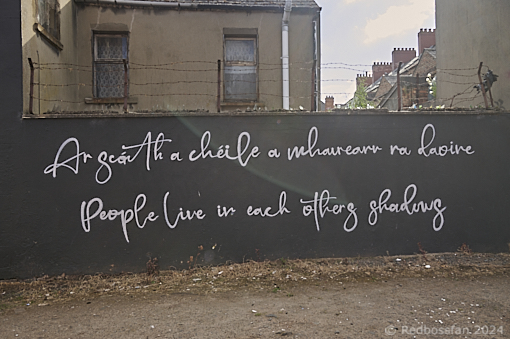 Ar scáth a chéile a mhaireann na daoine
People live in each others shadows
© Redbossfan 2024